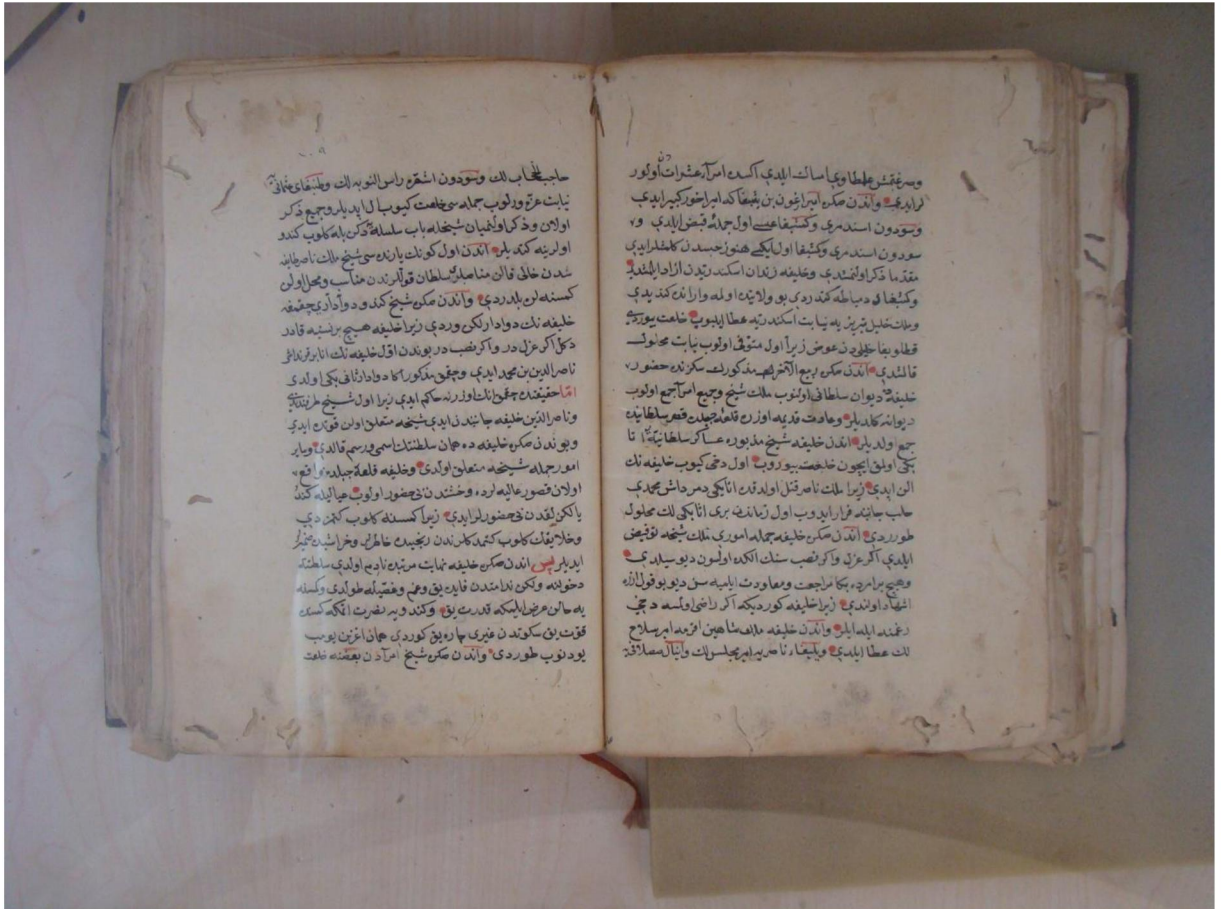 وسرغتمش علطاوي امساك ايلدي اكسده امرا عشرات دن اولور
لر ايدي واندن صكره امير ارغون بن بشبغا كه امير اخور كبير ايدي
وسودون اسندمري وكشبغا اول جمله قبض ايلدي
سودون اسندمري وكشبغا اول ايكيسي هنوز حبسدن كلمشلر ايدي
مقدما ذكر اولنمشدي وخليفه زندان اسكندريه دن ازاد ايلمشدي
وكشبغا دمياطه كندردي بو ولايتده اوله واراند كتديدي
وملك خليل تبريزيه نيابت اسكندريه عطا ايليوب خلعت بيوردي
قطلوبغا خليلدن عوض زيرا اول متوفى اولوب نيابت محلول
قالمشدي اندن صكره ربيع الاخر مذكورك سكزنده حضور
خليفه ده ديوان سلطاني اولنوب ملك شيخ وجميع امرا جمع اولوب
ديوانه كلديلر وعادت قديمه اوزره قلعه جبلده قصر سلطانيده
جمع اولديلر اندن خليفه شيخ مذبوره عساكر سلطانيه اتا
بكي اولمق ايچون خلعت بيوروب اول دخي كيوب خليفه نك
الن اپدي زيرا ملك ناصر قتل اولدقده اتابكي دمرداش محمدي
حلب جانبنه فرار ايدوب اول زماندن بري اتابكي لك محلول
طورردي اندن صكره خليفه جمله اموري ملك شيخه تفويض
ايلدي اكر عزل واكر نصب سنك الكده اولسون ديو سيلدي
وهيچ بر امرده بكا مراجعت ومعاودت ايلميه سن ديو بو قول اوزره
اشهاد اولندي زيرا خليفه كورديكه اكر راضي اولمسه دخي
رغمنه ايله ايلر واندن خليفه ملك شاهين افرمه امير سلاح
لك عطا ايلدي ويلبغاء ناصريه امير مجلس لك واينال صصلانيه
حاجب الحجاب لك وسودون اشقره راس النوبه لك وطنبغاي عثمانيه
نيابت غزه ورلوب جمله سي خلعت كيوب ال اپديلر وجميع ذكر
اولان وذكر اولنميان شيخله باب سلسله دكن بله كلوب كندو
اولرينه كتديلر اندن اول كونك يارنده سي شيخ ملك ناصر طايفه
سندن خالي قالن مناصبلر سلطان قوللرندن مناسب ومحل اولن
كمسنه لره بلدردي واندن صكره شيخ كندو دواداري چقمقه
خليفه نك دوادارلكن وردي زيرا خليفه هيچ بر نسنيه قادر
دكل اكر عزل در واكر نصب در بوندن اقدم خليفه نك انا بر قرنداشي
ناصر الدين بن محمد ايدي وچقمق مذكور اكا دوادار ثاني بكي اولدي
اما حقيقتده چقمق انك اوزرنه حاكم ايدي زيرا اول شيخ طرفندن ايدي
وناصر الدين خليفه جانبندن ايدي شيخه متعلق اولن قوتده ايدي
وبوندن صكره خليفه ده همان سلطنتك اسمي ورسمي قالدي وساير
امور جمله شيخه متعلق اولدي وخليفه قلعه جبلده واقع
اولان قصور عاليه لرده وحشتدن بي حضور اولوب عياليله كندو
يالكزلقدن بي حضورلر ايدي زيرا كمسنه كلوب كتمزدي
وخلايقك كلوب كتمدكلرندن رنجيده خاطر
ايديلر پس اندن صكره خليفه نهايت مرتبه نادم اولدي سلطنته
دخولنه ولكن ندامتدن فايده يق وغم وغصه ايله طولدي وكمسه
يه حالن عرض ايلمكه قدرت يق وكندويه نصرت اتمكه كمسده
قوت يق سكوتدن غيري چاره يق كوردي همان اغزين يومب
يودنوب طوردي واندن صكره شيخ امرادن بعضنه خلعت